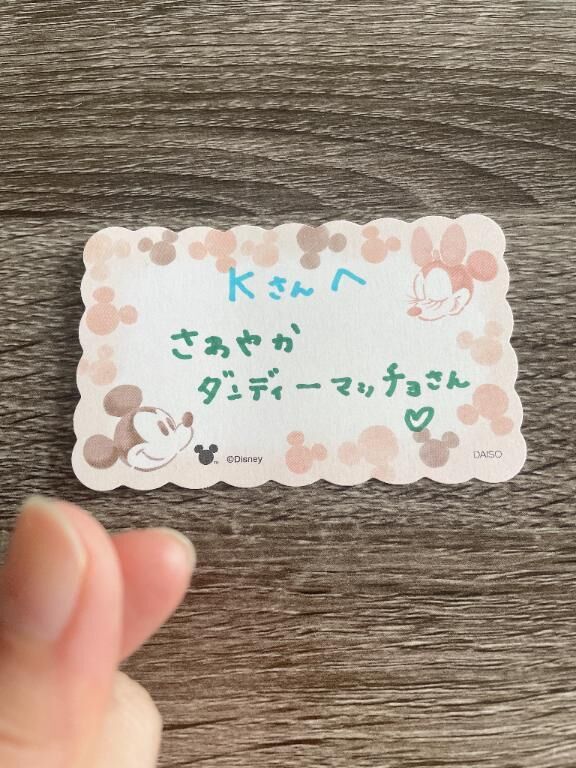 Kさんへ
さわやか
ダンディーマッチョさん
♡
©Disney
DAISO